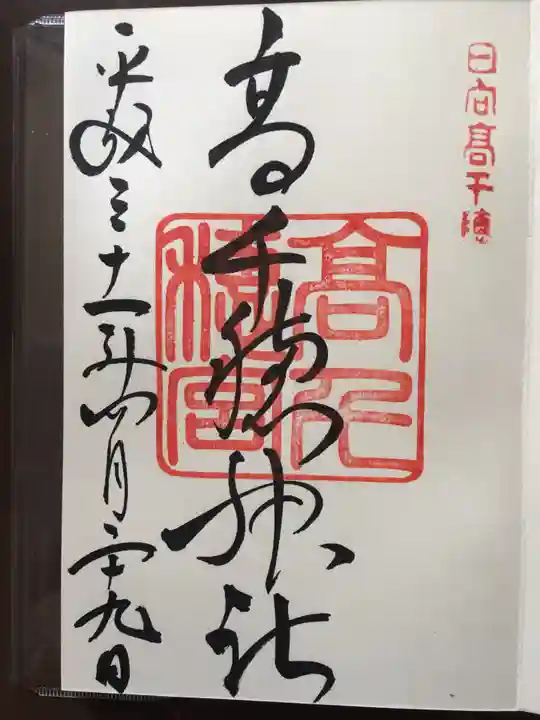 日向高千穂
高千穂神社
高千穂宮
平成三十一年四月二十九日